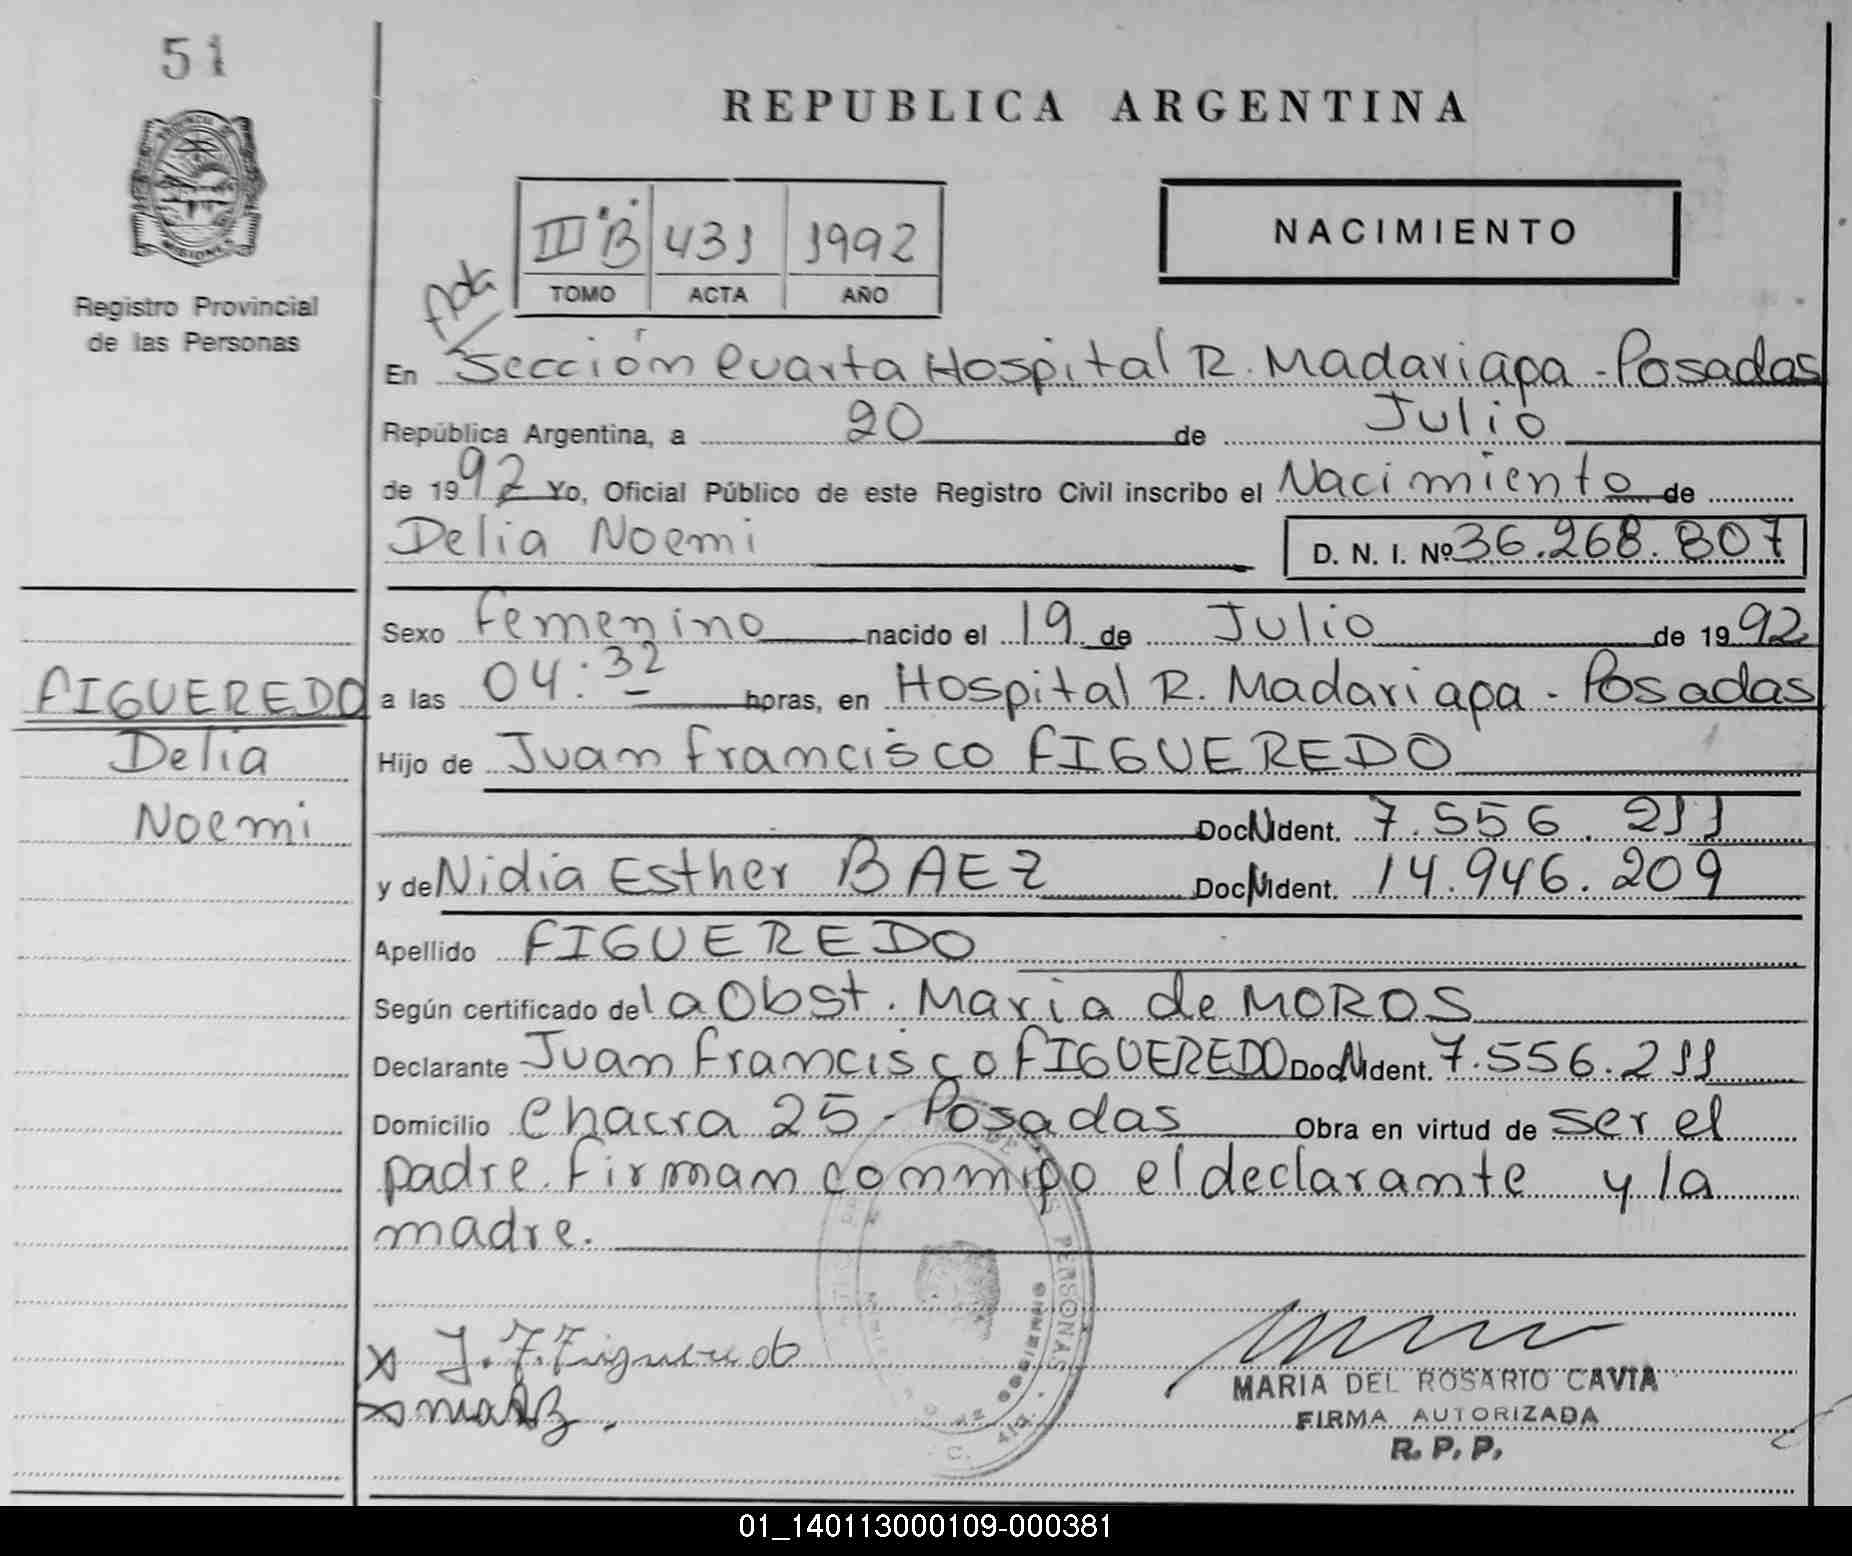 51
REPUBLICA ARGENTINA
III "B" 431 1992
TOMO ACTA AÑO
NACIMIENTO
Registro Provincial
de las Personas
Nota
En Sección Cuarta Hospital R. Madariaga - Posadas
República Argentina, a 20 de Julio
de 1992 Yo, Oficial Público de este Registro Civil inscribo el Nacimiento de
Delia Noemi D. N. I. Nº 36.268.807
Sexo Femenino nacido el 19 de Julio de 1992
a las 04:32 horas, en Hospital R. Madariaga - Posadas
Hijo de Juan Francisco FIGUEREDO
Doc. N. Ident. 7.556.211
y de Nidia Esther BAEZ Doc. N. Ident. 14.946.209
Apellido FIGUEREDO
Según certificado de la Obst. Maria de MOROS
Declarante Juan Francisco FIGUEREDO Doc. N. Ident. 7.556.211
Domicilio Chacra 25 - Posadas Obra en virtud de ser el
padre. Firman conmigo el declarante y la
madre.
FIGUEREDO
Delia
Noemi
x J. F. Figueredo
MARIA DEL ROSARIO CAVIA
FIRMA AUTORIZADA
R. P. P.
PERSONAS
01_140113000109-000381